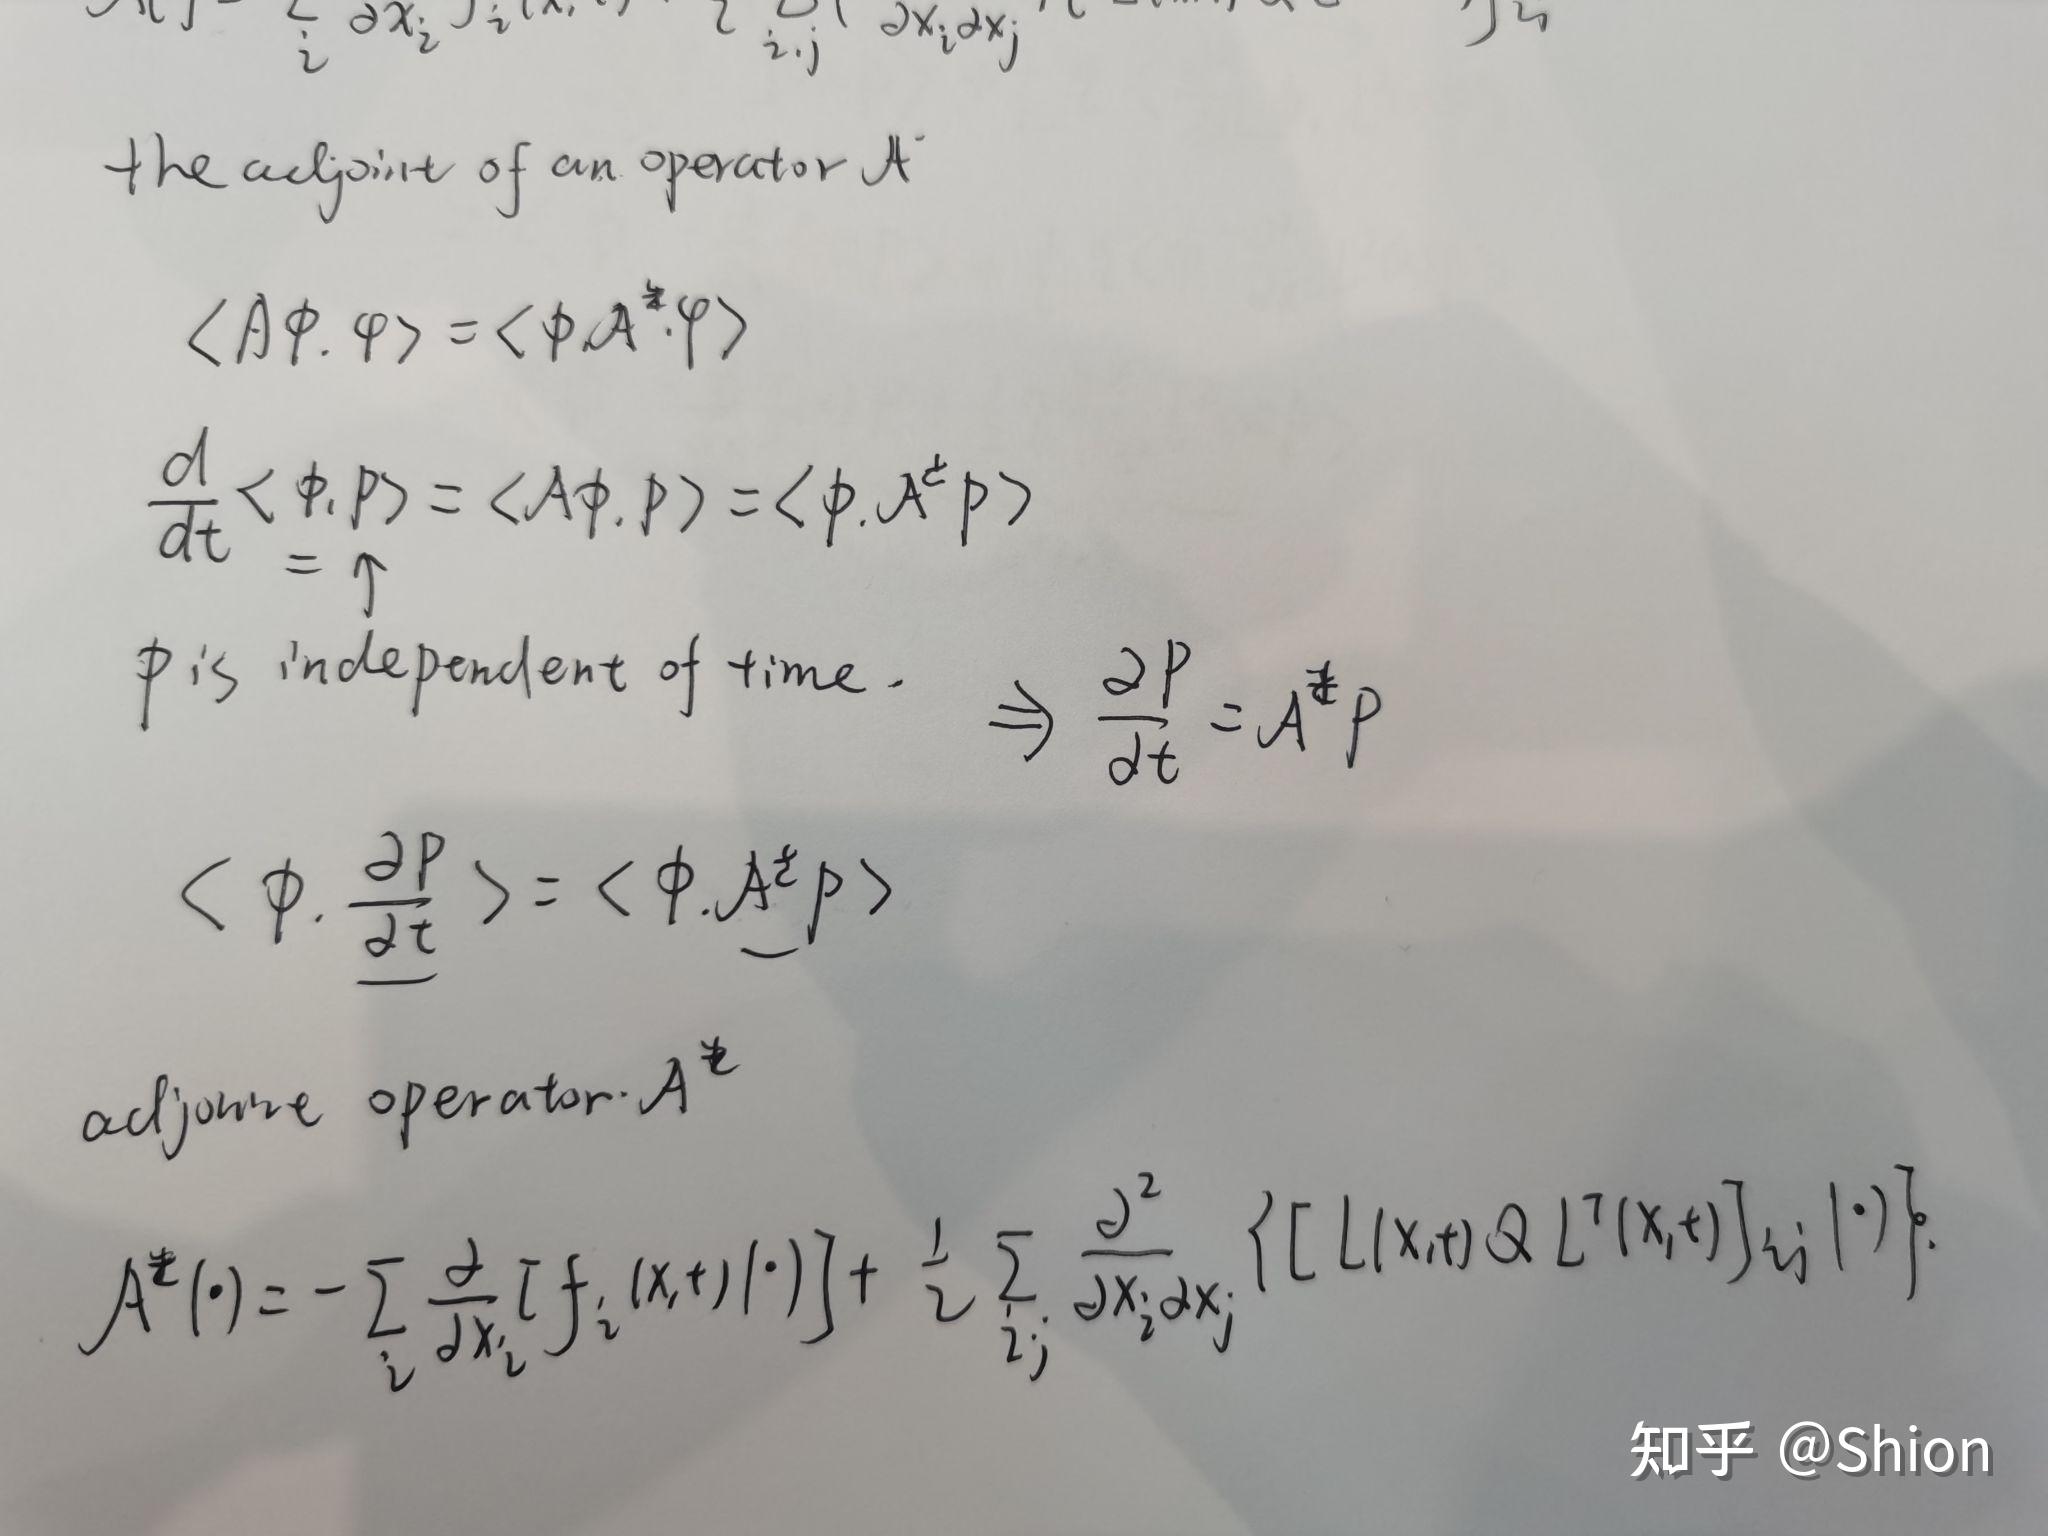 the adjoint of an operator A
<Aϕ.φ> = <ϕ.A*.φ>
d/dt <ϕ,p> = <Aϕ.p> = <ϕ.A*p>
= ↑
ϕ is independent of time.
⇒ ∂P/∂t = A*p
<ϕ.∂p/∂t> = <ϕ.A*p>
operator. A*
A*(•) = -∑_i ∂/∂x_i [f_i(x,t)(•)] + 1/2 ∑_ij ∂²/∂x_i∂x_j {[L(x,t) Q L^T(x,t)]_ij (•)}.
知乎 @Shion